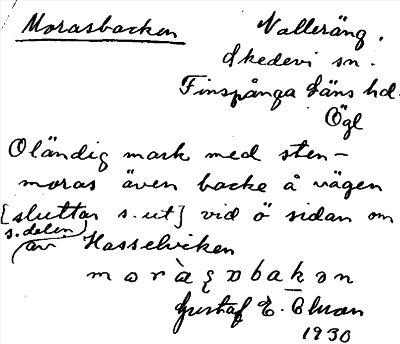 Morasbacken
Valleräng.
Skedevi sn.
Finspånga läns hd.
Ögl
Oländig mark med sten-
moras även backe å vägen
[sluttar s.ut] vid ö sidan om
s. delen
av Hasselviken
Gustaf E.
1930